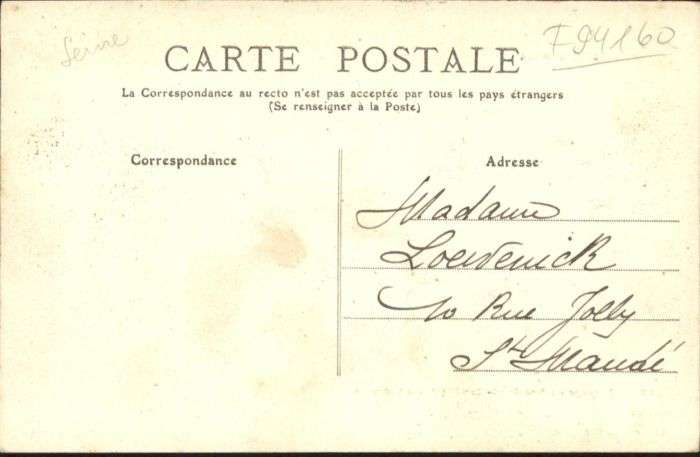 Seine
F 94160
CARTE POSTALE
La Correspondance au recto n'est pas acceptée par tous les pays étrangers
(Se renseigner à la Poste)
Correspondance
Adresse
Madame
10 Rue Jolly
St Mandé